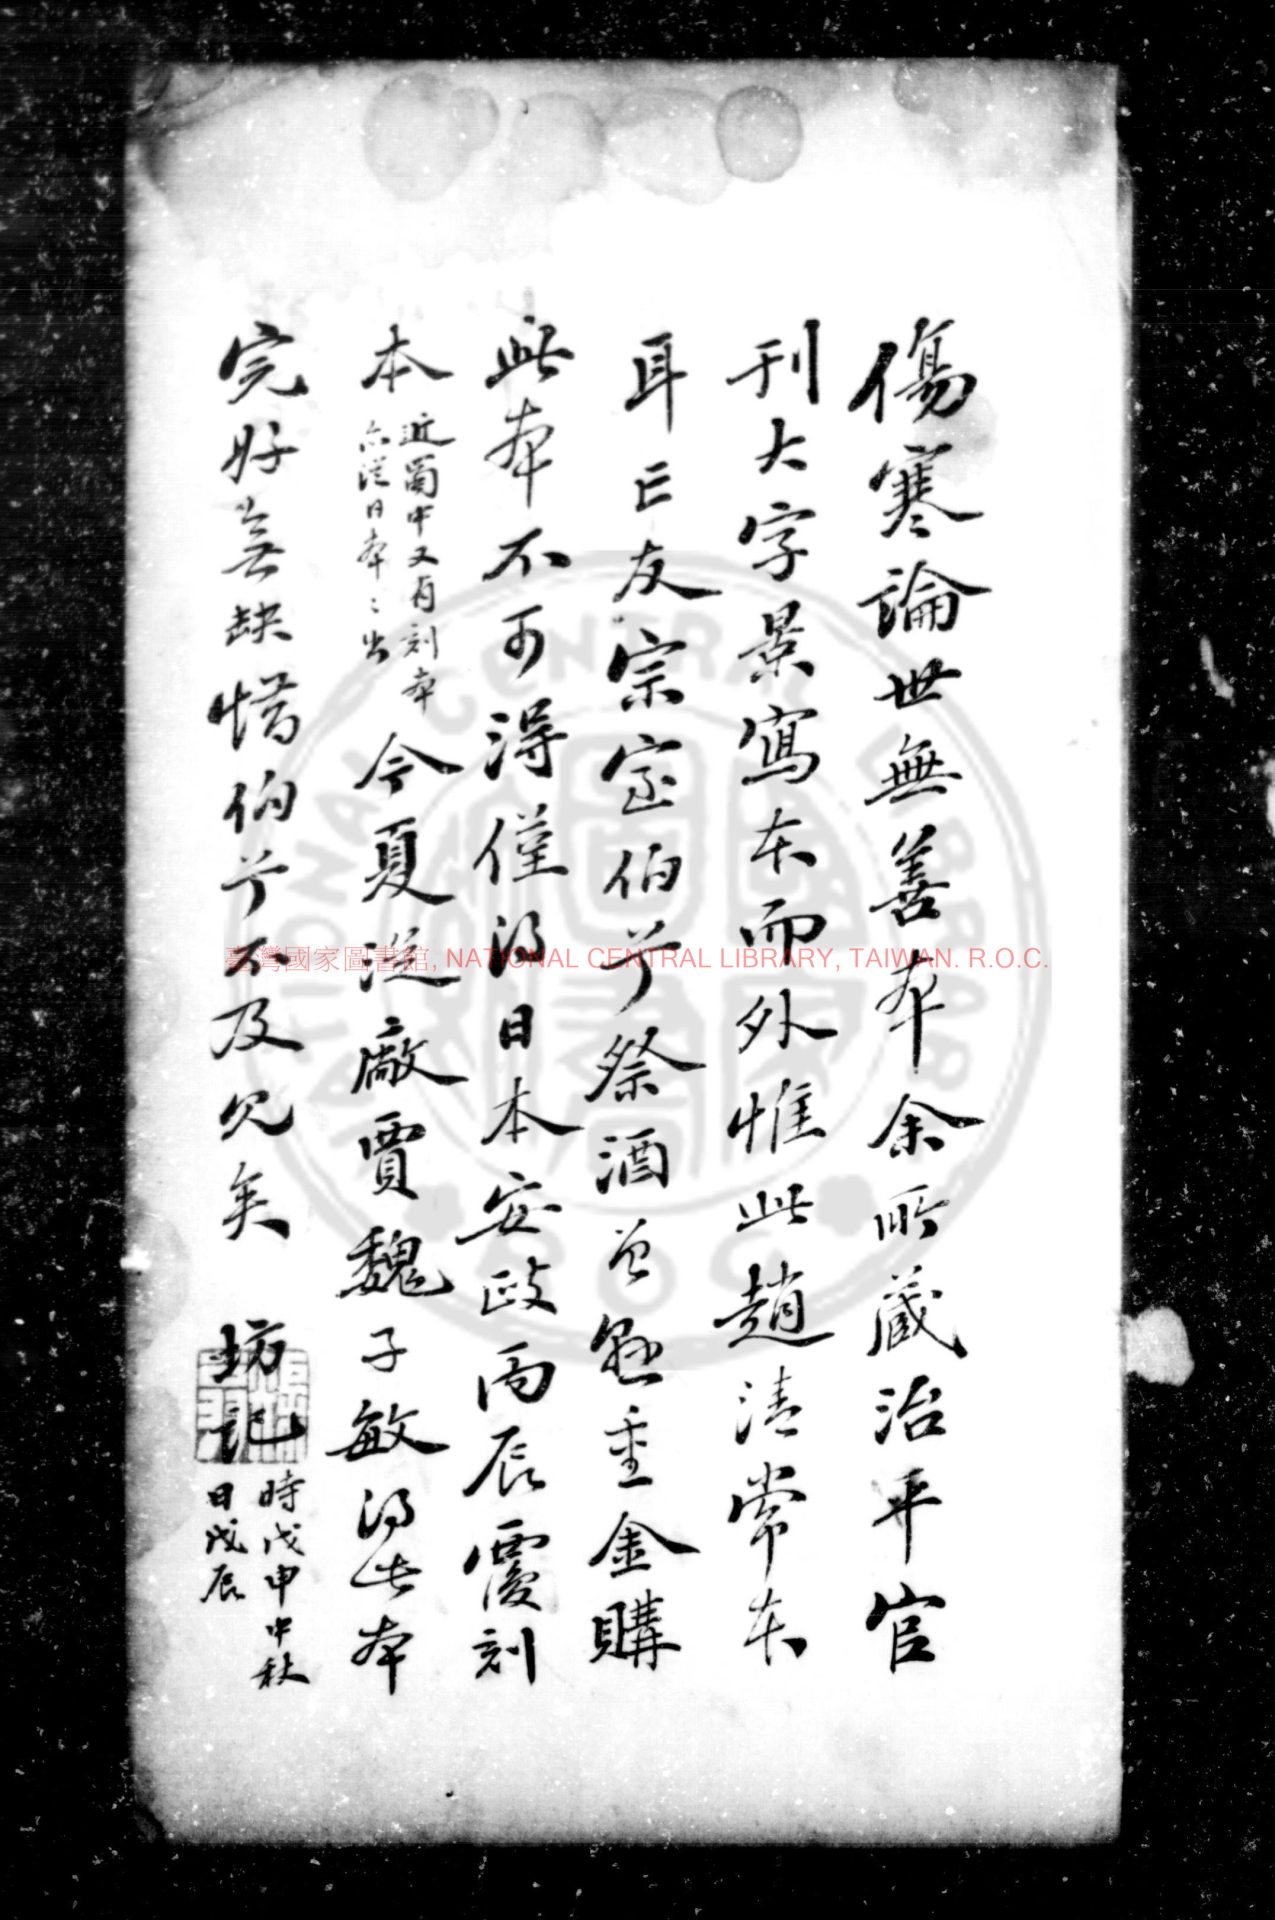 傷寒論世無善本余所藏治平官
刊大字景寫本而外惟此趙清常本
耳亡友宗室伯兮祭酒曾懸重金購
此本不可得僅得日本安政丙辰覆刻
本
近蜀中又有刻本
亦從日本〻出
今夏從廠賈魏子敏得此本
完好無缺惜伯兮不及見矣 坊記
時戊申中秋
日戊辰
臺灣國家圖書館, NATIONAL CENTRAL LIBRARY, TAIWAN. R.O.C.